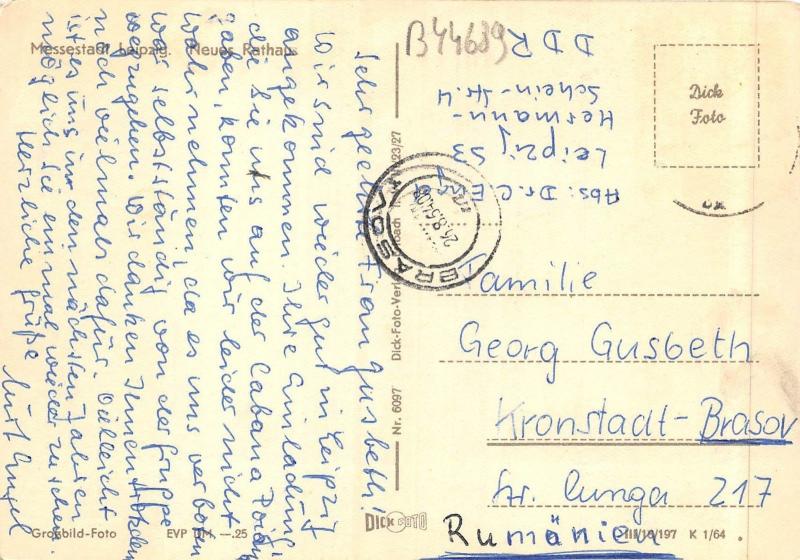 Messestadt Leipzig. Neues Rathaus
B44689
Sehr geehrte Frau Gusbeth!
Wir sind wieder gut in Leipzig
angekommen. Ihre Einladung
die Sie uns auf der Cabana
gaben, konnten wir leider nicht
wahrnehmen, da es uns verboten
war selbstständig von der Gruppe
wegzugehen. Wir danken Ihnen trotzdem
noch vielmals dafür. Vielleicht
ist es uns in den nächsten Jahren
möglich Sie einmal wieder zu sehen.
Herzliche Grüße
Engel
Großbild-Foto EVP DM —.25
Nr. 6097 Dick-Foto-Verl
23/27
DICK FOTO
Abs: Dr. C. Engel
Leipzig S3
Hermann-
Schein-Str. 4
DDR
Dick
Foto
BRASOV
Familie
Georg Gusbeth
Kronstadt-Brasov
Str. Lunga 217
Rumänien
III/18/197 K 1/64